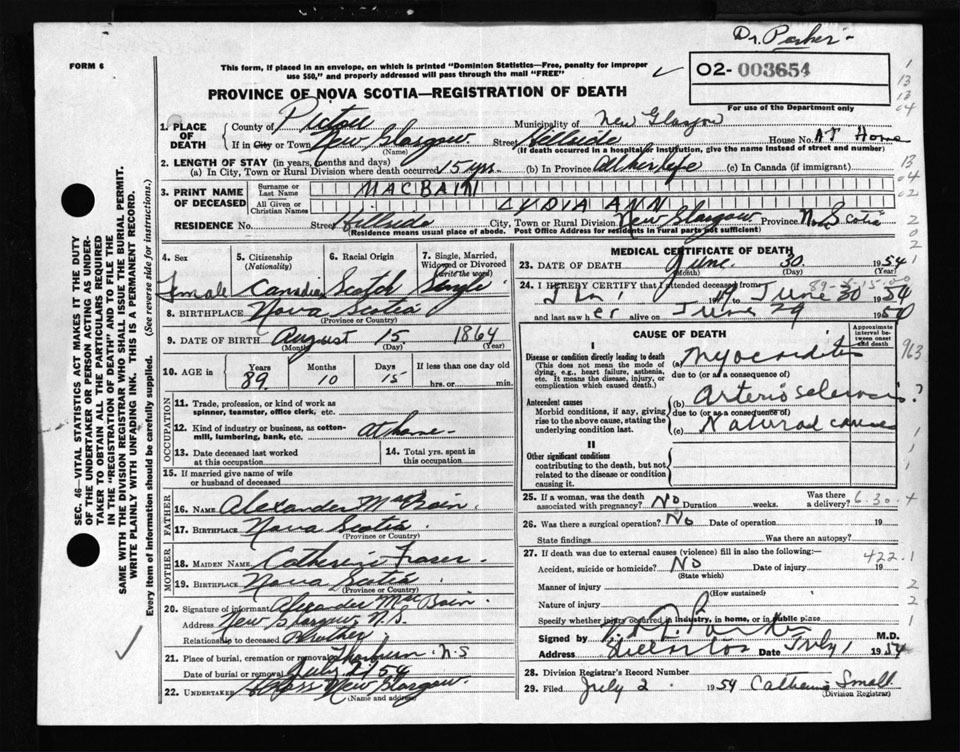 Dr. Parker
FORM 6
This form, if placed in an envelope, on which is printed "Dominion Statistics—Free, penalty for improper use $50," and properly addressed will pass through the mail "FREE"
02-003654
For use of the Department only
PROVINCE OF NOVA SCOTIA—REGISTRATION OF DEATH
1. PLACE OF DEATH
County of Pictou Municipality of New Glasgow
If in City or Town New Glasgow Street Hillside House No. At Home
(Name) (If death occurred in a hospital institution, give the name instead of street and number)
2. LENGTH OF STAY (in years, months and days)
(a) In City, Town or Rural Division where death occurred 15 yrs. (b) In Province all her life (c) In Canada (if immigrant)
3. PRINT NAME OF DECEASED
Surname or Last Name MACBAIN
All Given or Christian Names LYDIA ANN
RESIDENCE No. Street Hillside City, Town or Rural Division New Glasgow Province Nova Scotia
(Residence means usual place of abode. Post Office Address for residents in rural parts not sufficient)
4. Sex Female
5. Citizenship (Nationality) Canadian
6. Racial Origin Scotch
7. Single, Married, Widowed or Divorced (write the word) Single
8. BIRTHPLACE Nova Scotia
(Province or Country)
9. DATE OF BIRTH August 15 1864
(Month) (Day) (Year)
10. AGE in Years 89 Months 10 Days 15 If less than one day old hrs. or min.
OCCUPATION
11. Trade, profession, or kind of work as spinner, teamster, office clerk, etc.
12. Kind of industry or business, as cotton-mill, lumbering, bank, etc. at home.
13. Date deceased last worked at this occupation
14. Total yrs. spent in this occupation
15. If married give name of wife or husband of deceased
FATHER
16. Name Alexander MacBain.
17. Birthplace Nova Scotia
(Province or Country)
MOTHER
18. Maiden Name Catherine Fraser.
19. Birthplace Nova Scotia.
(Province or Country)
20. Signature of informant Alexander MacBain
Address New Glasgow, N.S.
Relationship to deceased Brother
21. Place of burial, cremation or removal Thorburn N.S
Date of burial or removal July 2/54
22. Undertaker New Glasgow.
(Name and address)
MEDICAL CERTIFICATE OF DEATH
23. DATE OF DEATH June 30 1954
(Month) (Day) (Year)
24. I HEREBY CERTIFY that I attended deceased from
19 June 30 1954
and last saw her alive on June 29 1954
CAUSE OF DEATH
Approximate interval between onset and death
I
Disease or condition directly leading to death
(This does not mean the mode of dying, e.g., heart failure, asthenia, etc. It means the disease, injury, or complication which caused death.)
(a) Myocarditis
due to (or as a consequence of)
Antecedent causes
Morbid conditions, if any, giving rise to the above cause, stating the underlying condition last.
(b) Arterio sclerosis ?
due to (or as a consequence of)
(c) Natural causes
II
Other significant conditions
contributing to the death, but not related to the disease or condition causing it.
963
25. If a woman, was the death associated with pregnancy? No Duration weeks. Was there a delivery?
26. Was there a surgical operation? No Date of operation 19
State findings Was there an autopsy?
27. If death was due to external causes (violence) fill in also the following:— 422.1
Accident, suicide or homicide? No Date of injury 19
(State which)
Manner of injury
(How sustained)
Nature of injury
Specify whether injury occurred in industry, in home, or in public place
Signed by Parker M.D.
Address Stellarton Date July 1 1954
28. Division Registrar's Record Number
29. Filed July 2 1954 Catherine Small
(Division Registrar)
SEC. 46—VITAL STATISTICS ACT MAKES IT THE DUTY OF THE UNDERTAKER OR PERSON ACTING AS UNDERTAKER TO OBTAIN ALL THE PARTICULARS REQUIRED IN THE "REGISTRATION OF DEATH" AND TO FILE THE SAME WITH THE DIVISION REGISTRAR WHO SHALL ISSUE THE BURIAL PERMIT.
WRITE PLAINLY WITH UNFADING INK. THIS IS A PERMANENT RECORD.
Every item of information should be carefully supplied. (See reverse side for instructions.)